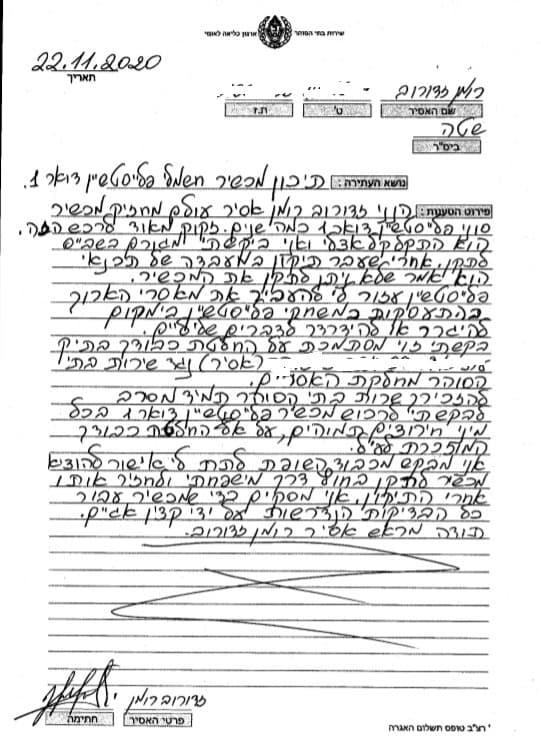 שירות בתי הסוהר ארגון כליאה לאומי
22.11.2020
תאריך
רומן זדורוב
שם האסיר ט' ת.ז
שטה
ביס"ר
נושא העתירה: תיכון מכשיר חשמל פלייסטשיין דואר 1.
פירוט הטענות: הנני זדורוב רומן אסיר עולם מחזיק מכשיר
סוני פלייסטשיין דואר 1 כמה שנים. זקוק מאוד לרכש הזה.
הוא התקלקל אצלי ואני ביקשתי מגורם בשב"ס
לתקן. אחרי שעבר תיקון במעבדה של תכנאי
הוא אמר שלא ניתן לתקן את המכשיר.
פלייסטשיין עזור לי להעביר את מאסרי הארוך
בהתעסקות במשחקי פלייסטשיין בימקום
להיגרר או להידרדר לדברים שליליים.
בקשתי זני מסתמכת על החלטת כבודך בתיק
(אסיר) נגד שירות בתי
הסוהר מחלקת האסירים.
להזכירך שרות בתי הסוהר תמיד מסרב
לבקשתי לרכוש מכשיר פלייסטשיין דואר 1 בכל
מיני תירוצים תמוהים, על אף החלטת כבודך
המוזכרת לעיל.
אני מבקש מכבוד השופת לתת לי אישור להוציא
מכשיר לתקן בחוץ דרך מישפחתי ולחזיר אותו
אחרי התיקון, אני מסקים כדי שמכשיר עבור
כל הבדיקות הנדרשות על ידי קצין אג"ם.
תודה מראש אסיר רומן זדורוב.
זדורוב רומן
חתימה פרטי האסיר
* רצ"ב טופס תשלום האגרה